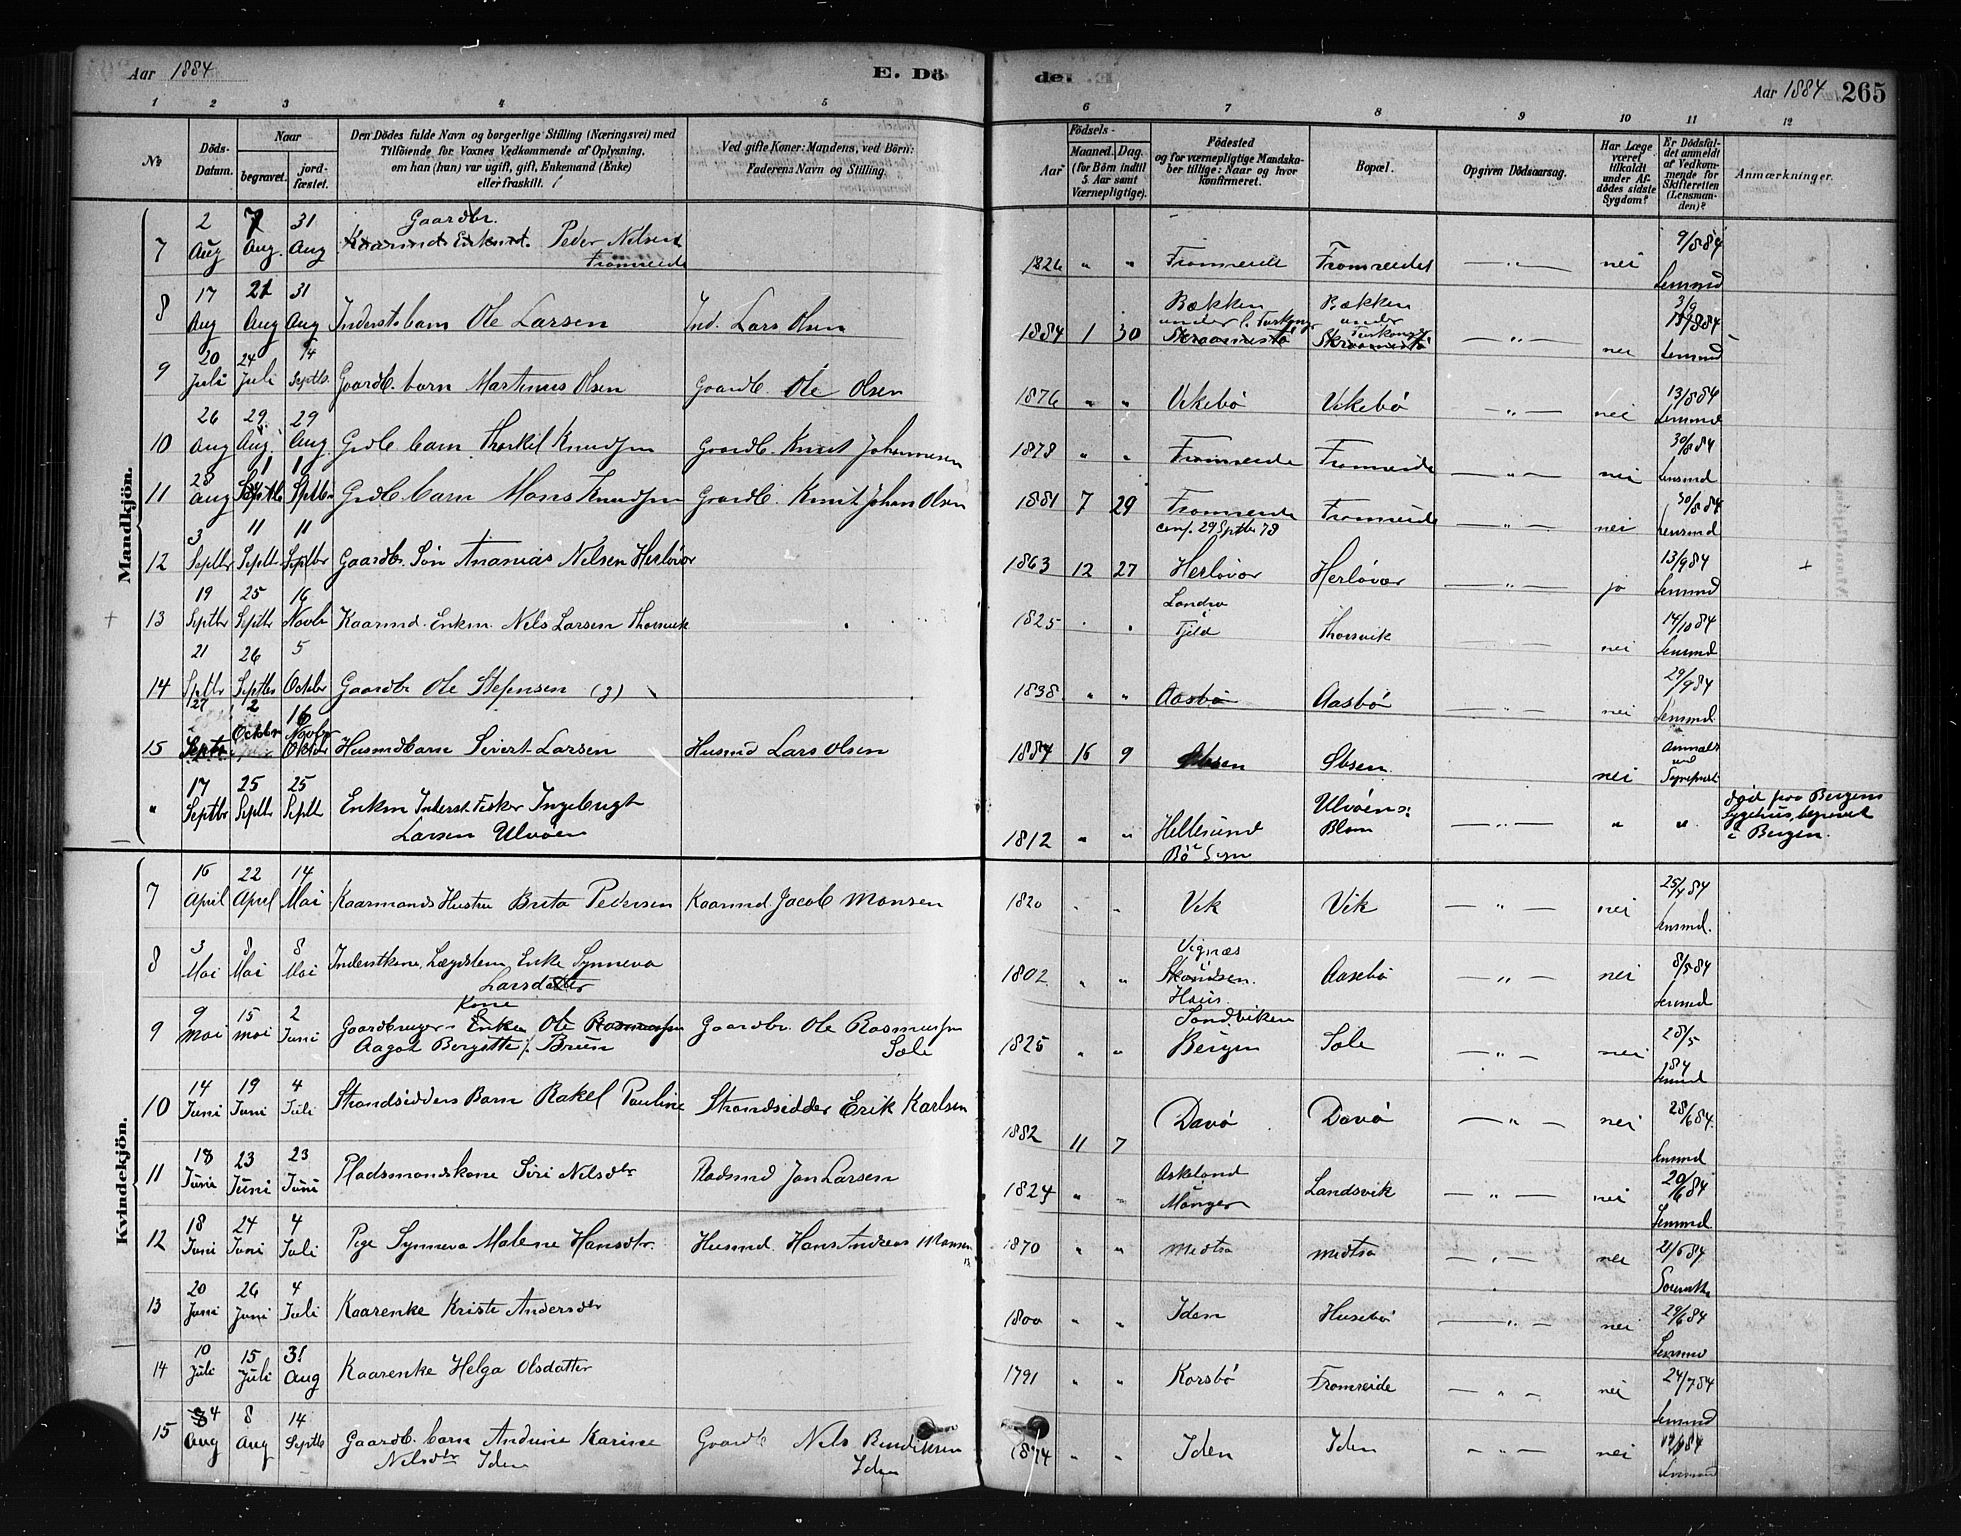 Aar 1884
E. Dö
de.
Aar 1884 265
1 2 3 4 5 6 7 8 9 10 11 12
No
Döds-Datum.
Naar
begravet.
jord-fæstet.
Den Dödes fulde Navn og borgerlige Stilling (Næringsvei) med
Tilföiende for Voxnes Vedkommende af Oplysning,
om han (hun) var ugift, gift, Enkemand (Enke)
eller fraskilt.
Ved gifte Koner: Mandens, ved Börn:
Faderens Navn og Stilling.
Födsels-
Aar
Maaned. Dag.
(for Börn indtil
5 Aar samt
Værnepligtige).
Födested
og for værnepligtige Mandska-
ber tillige: Naar og hvor
Konfirmeret.
Bopæl.
Opgiven Dödsaarsag.
Har Læge
været
tilkaldt
under Af-
dödes sidste
Sygdom?
Er Dödsfal-
det anmeldt
af Vedkom-
mende for
Skifteretten
(Lensman-
den)?
Anmærkninger.
Mandkjön.
7 2 Aug 7 Aug. 31 Aug Gaardbr. Kaarmands Enkmd. Peder Nilsen Fromreide 1826 " " Fromreide Fromreide — " — nei 9/8 84 Lensmd
8 17 Aug 21 Aug 31 Aug Inderstsbarn Ole Larsen Ind. Lars Olsen 1884 1 30 Bækken under Skraamestø Bækken under Skraamestø — " — nei 3/9 84 Lensmd
9 20 Juli 24 Juli 14 Septb. Gaardb. barn Martinus Olsen Gaardb. Ole Olsen 1876 " " Vikebø Vikebø — " — nei 13/8 84 Lensmd
10 26 Aug 29 Aug. 29 Aug Grdb barn Thorkil Knudsen Gaardb. Knut Johannesen 1878 " " Fromreide Fromreide — " — nei 30/8 84 Lensmd
11 28 Aug 1 Septb 1 Septbr Grdb barn Mons Knudsen Gaardb. Knut Johan Olsen 1881 7 29 Fromreide Fromreide — " — nei 30/8 84 Lensmd
12 3 Septbr 11 Septb. 11 Septbr Gaardbr. Søn Ananias Nilsen Herløvær 1863 12 27 conf. 29 Septbr 78 Herløvær Herløvær — " — jo 13/9 84 Lensmd +
+ 13 19 Septbr 25 Septbr 16 Novbr Kaarmd. Enkm. Nils Larsen Thorsvik 1825 " " Landro i Fjeld Thorsvik — " — nei 14/10 84 Lensmd
14 21 Septbr 26 Septbr 5 Octobr Gaardbr Ole Stefensen (g) 1838 " " Aasbø Aasbø — " — nei 29/9 84 Lensmd.
15 27 Septr. 2 Octobr 16 Novbr Oktbr Husmdbarn Sivert Larsen Husmd Lars Olsen 1884 9 Øbsen Øbsen. nei
" 17 Septbr 25 Septbr 25 Septbr Enkm Inderst Fisker Ingebrigt Larsen Ulvøen 1812 " " Hellesund Bø Sogn Ulvøen Blom — " — " " død paa Bergens Sygehus, begravet i Bergen.
Kvindekjön.
7 16 April 22 April 14 Mai Kaarmands Hustru Brita Pedersen Kaarmd. Jacob Monsen 1820 " " Vik Vik — " — nei 25/4 84 Lensmd.
8 3 Mai 8 Mai 8 Mai Inderstkone, Lægdslem, Enke Synneva Larsdatter 1802 " " Vignæs Haus. Aasebø — " — nei 8/5 84 Lensmd
9 9 Mai 15 Mai 2 Juni Gaardbruger Enken Kone Ole Rasmussen Aagot Bergitte f. Bruun Gaardbr. Ole Rasmussen Sæle 1825 " " Sandviken Bergen Sæle — " — nei 28/5 84 Lensmd
10 14 Juni 19 Juni 4 Juli Strandsidders Barn Rakel Pauline Strandsidder Erik Karlsen 1882 11 7 Davø Davø — " — nei 28/6 84. Lensmd
11 18 Juni 23 Juni 23 Juni Pladsmandskone Siri Nilsdtr Pladsmd Jon Larsen 1824 " " Askland Manger Landsvik — " — nei 20/6 84 Lensmd
12 18 Juni 24 Juni 4 Juli Pige Synneva Malene Hansdtr. Husmd. Hans Andreas Monsen 1870 " " Midtsæ Midtsæ — " — nei 21/6 84
13 20 Juni 26 Juni 4 Juli Kaarenke Kristi Andersdtr 1800 " " Iden Husebø — " — nei 29/6 84 Lensmd
14 10 Juli 15 Juli 31 Aug Kaarenke Helga Olsdatter 1791 " " Korsbø Fromreide — " — nei 24/7 84 Lensmd
15 4 Aug 8 Aug 14 Septb Gaardb. barn Andrine Karine Nilsdtr Iden Gaardb Nils Bendiksen Iden 1874 Iden Iden — " — nei Lensmd